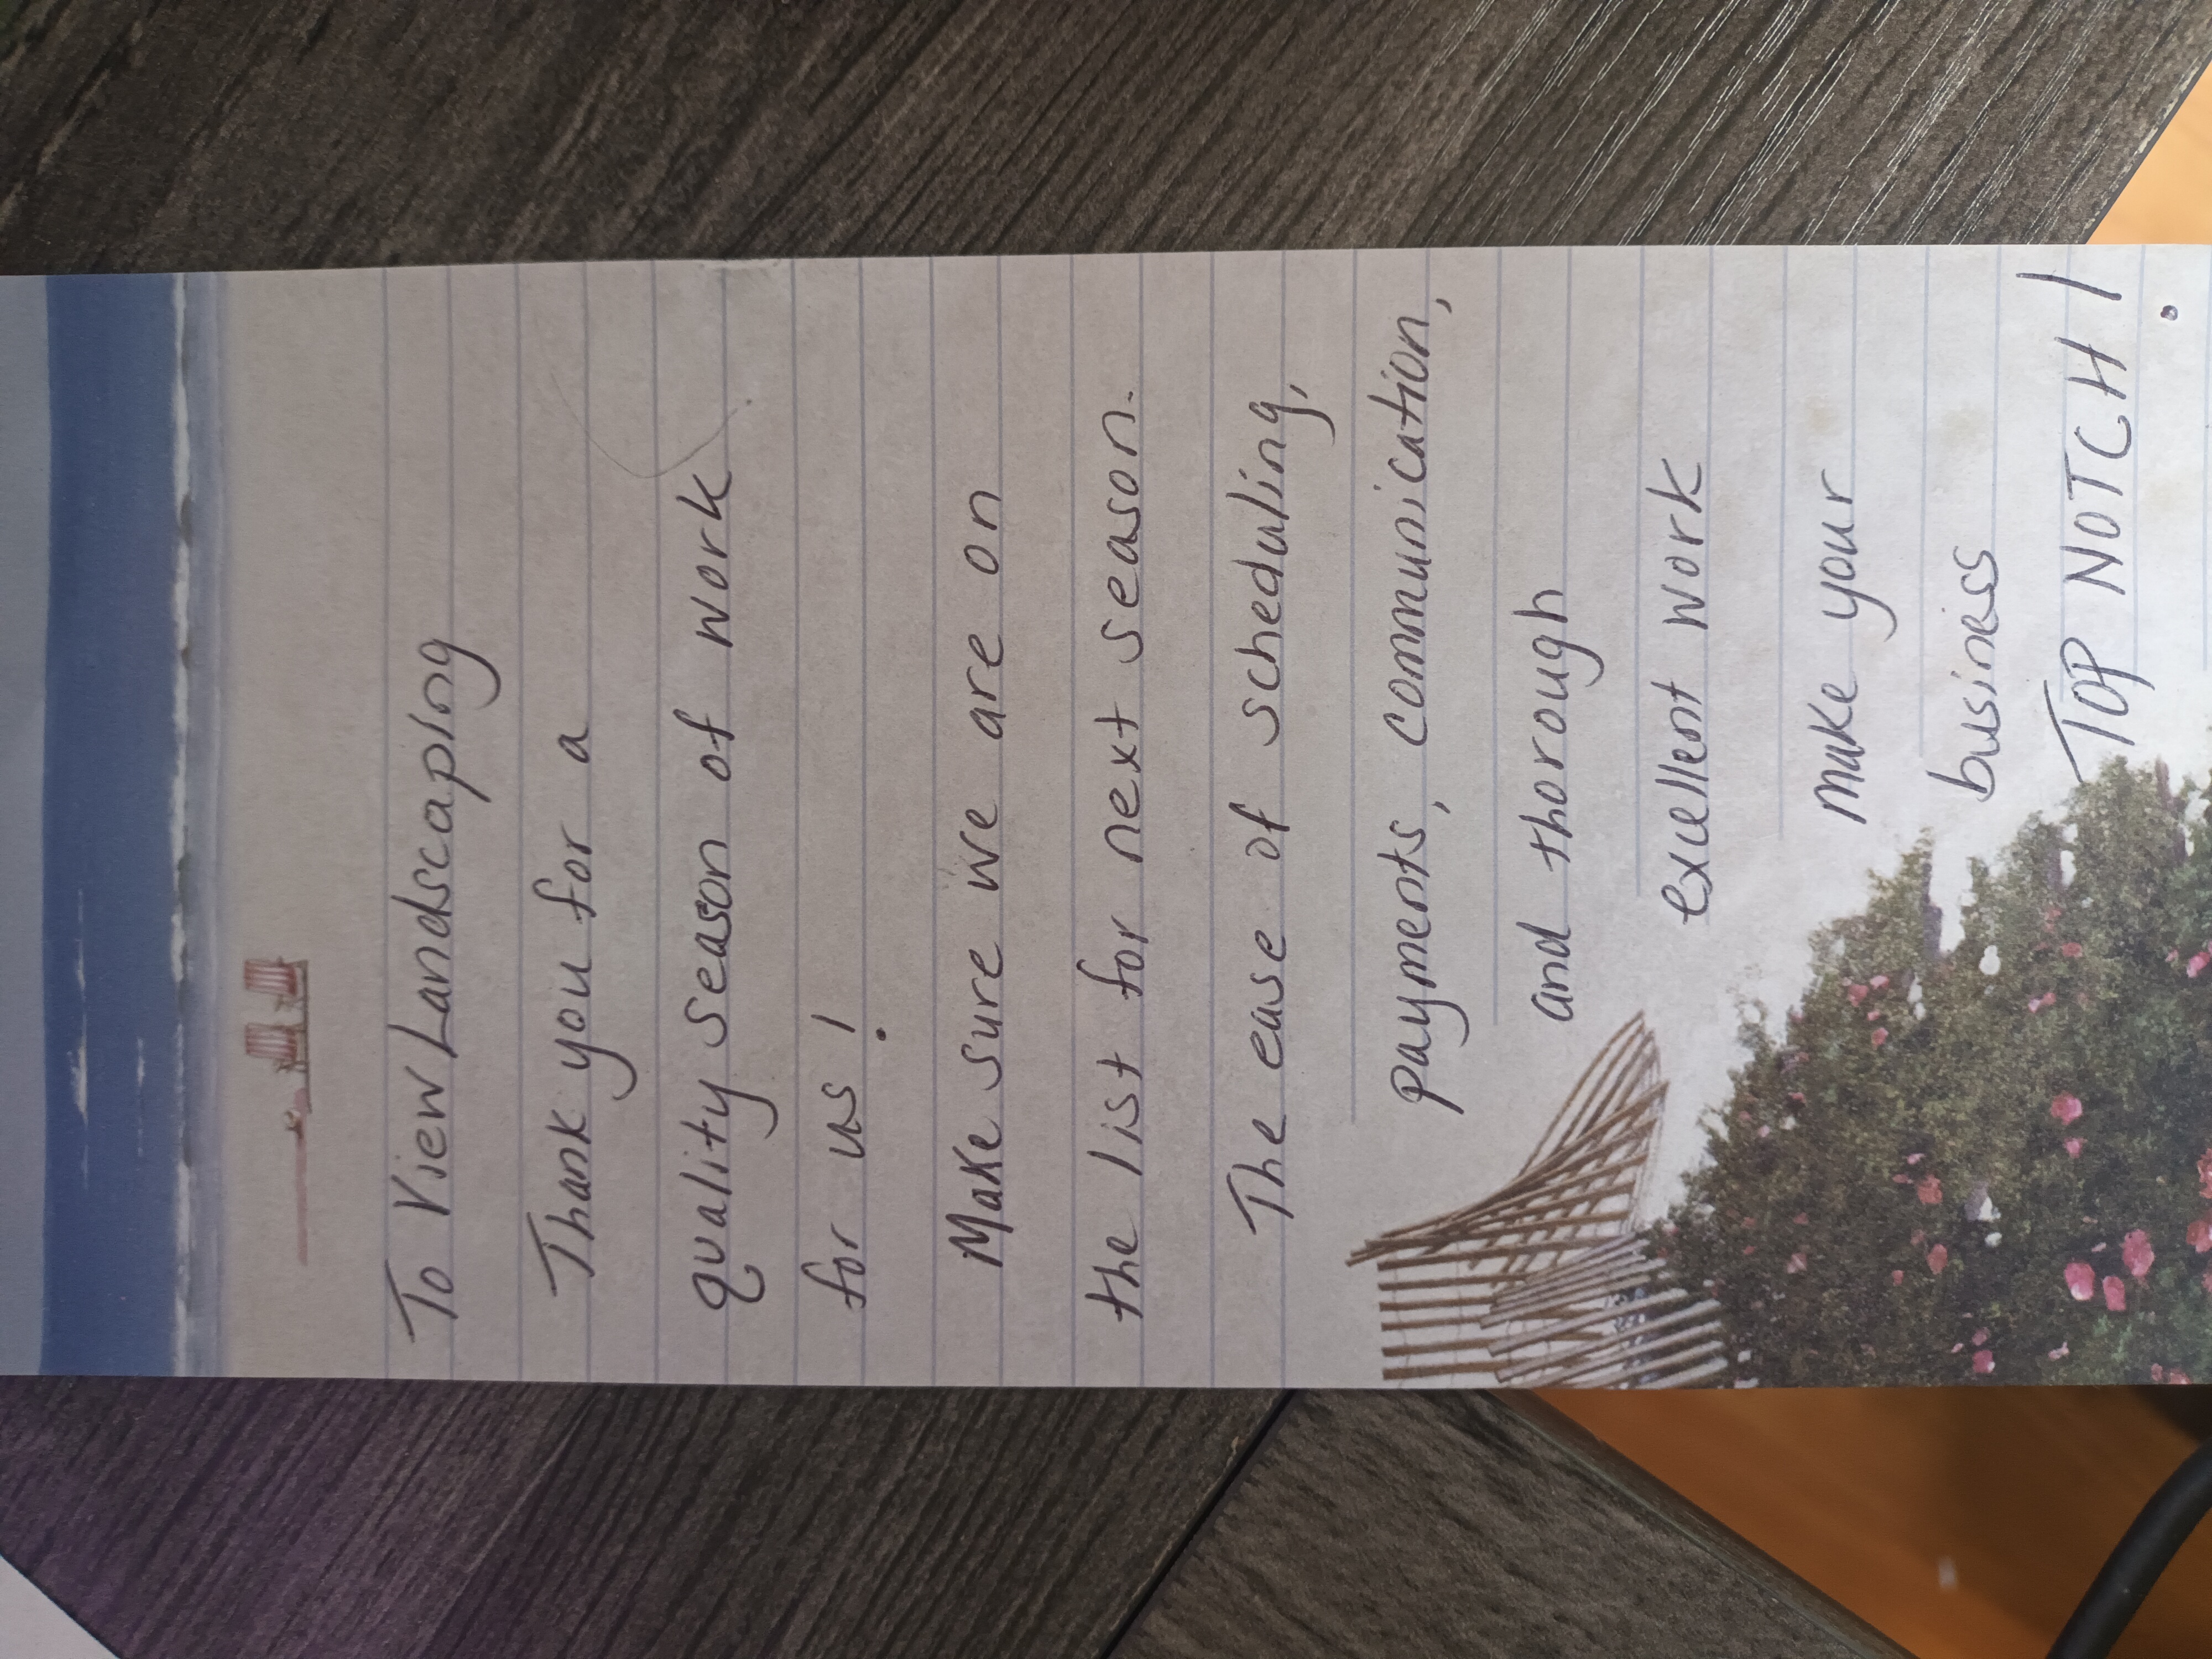 To View Landscaping
Thank you for a
quality season of work
for us!
Make sure we are on
the list for next season.
The ease of scheduling,
payments, communication,
and thorough
excellent work
make your
business
TOP NOTCH!